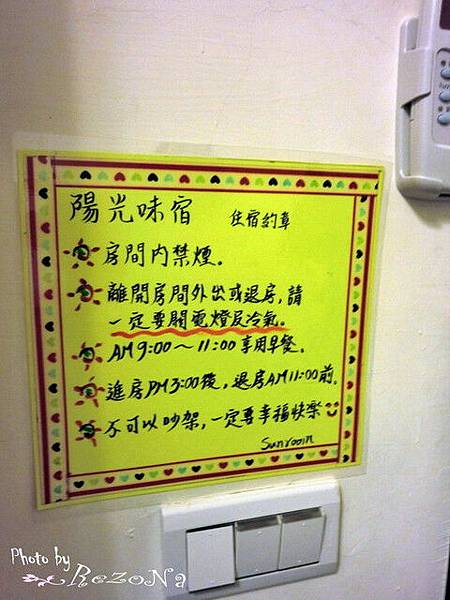 陽光味宿 住宿約章
房間內禁煙。
離開房間外出或退房,請
一定要關電燈及冷氣。
AM9:00~11:00享用早餐。
進房PM3:00後,退房AM11:00前。
不可以吵架,一定要幸福快樂
Sunrooin
Photo by
ReZoNa